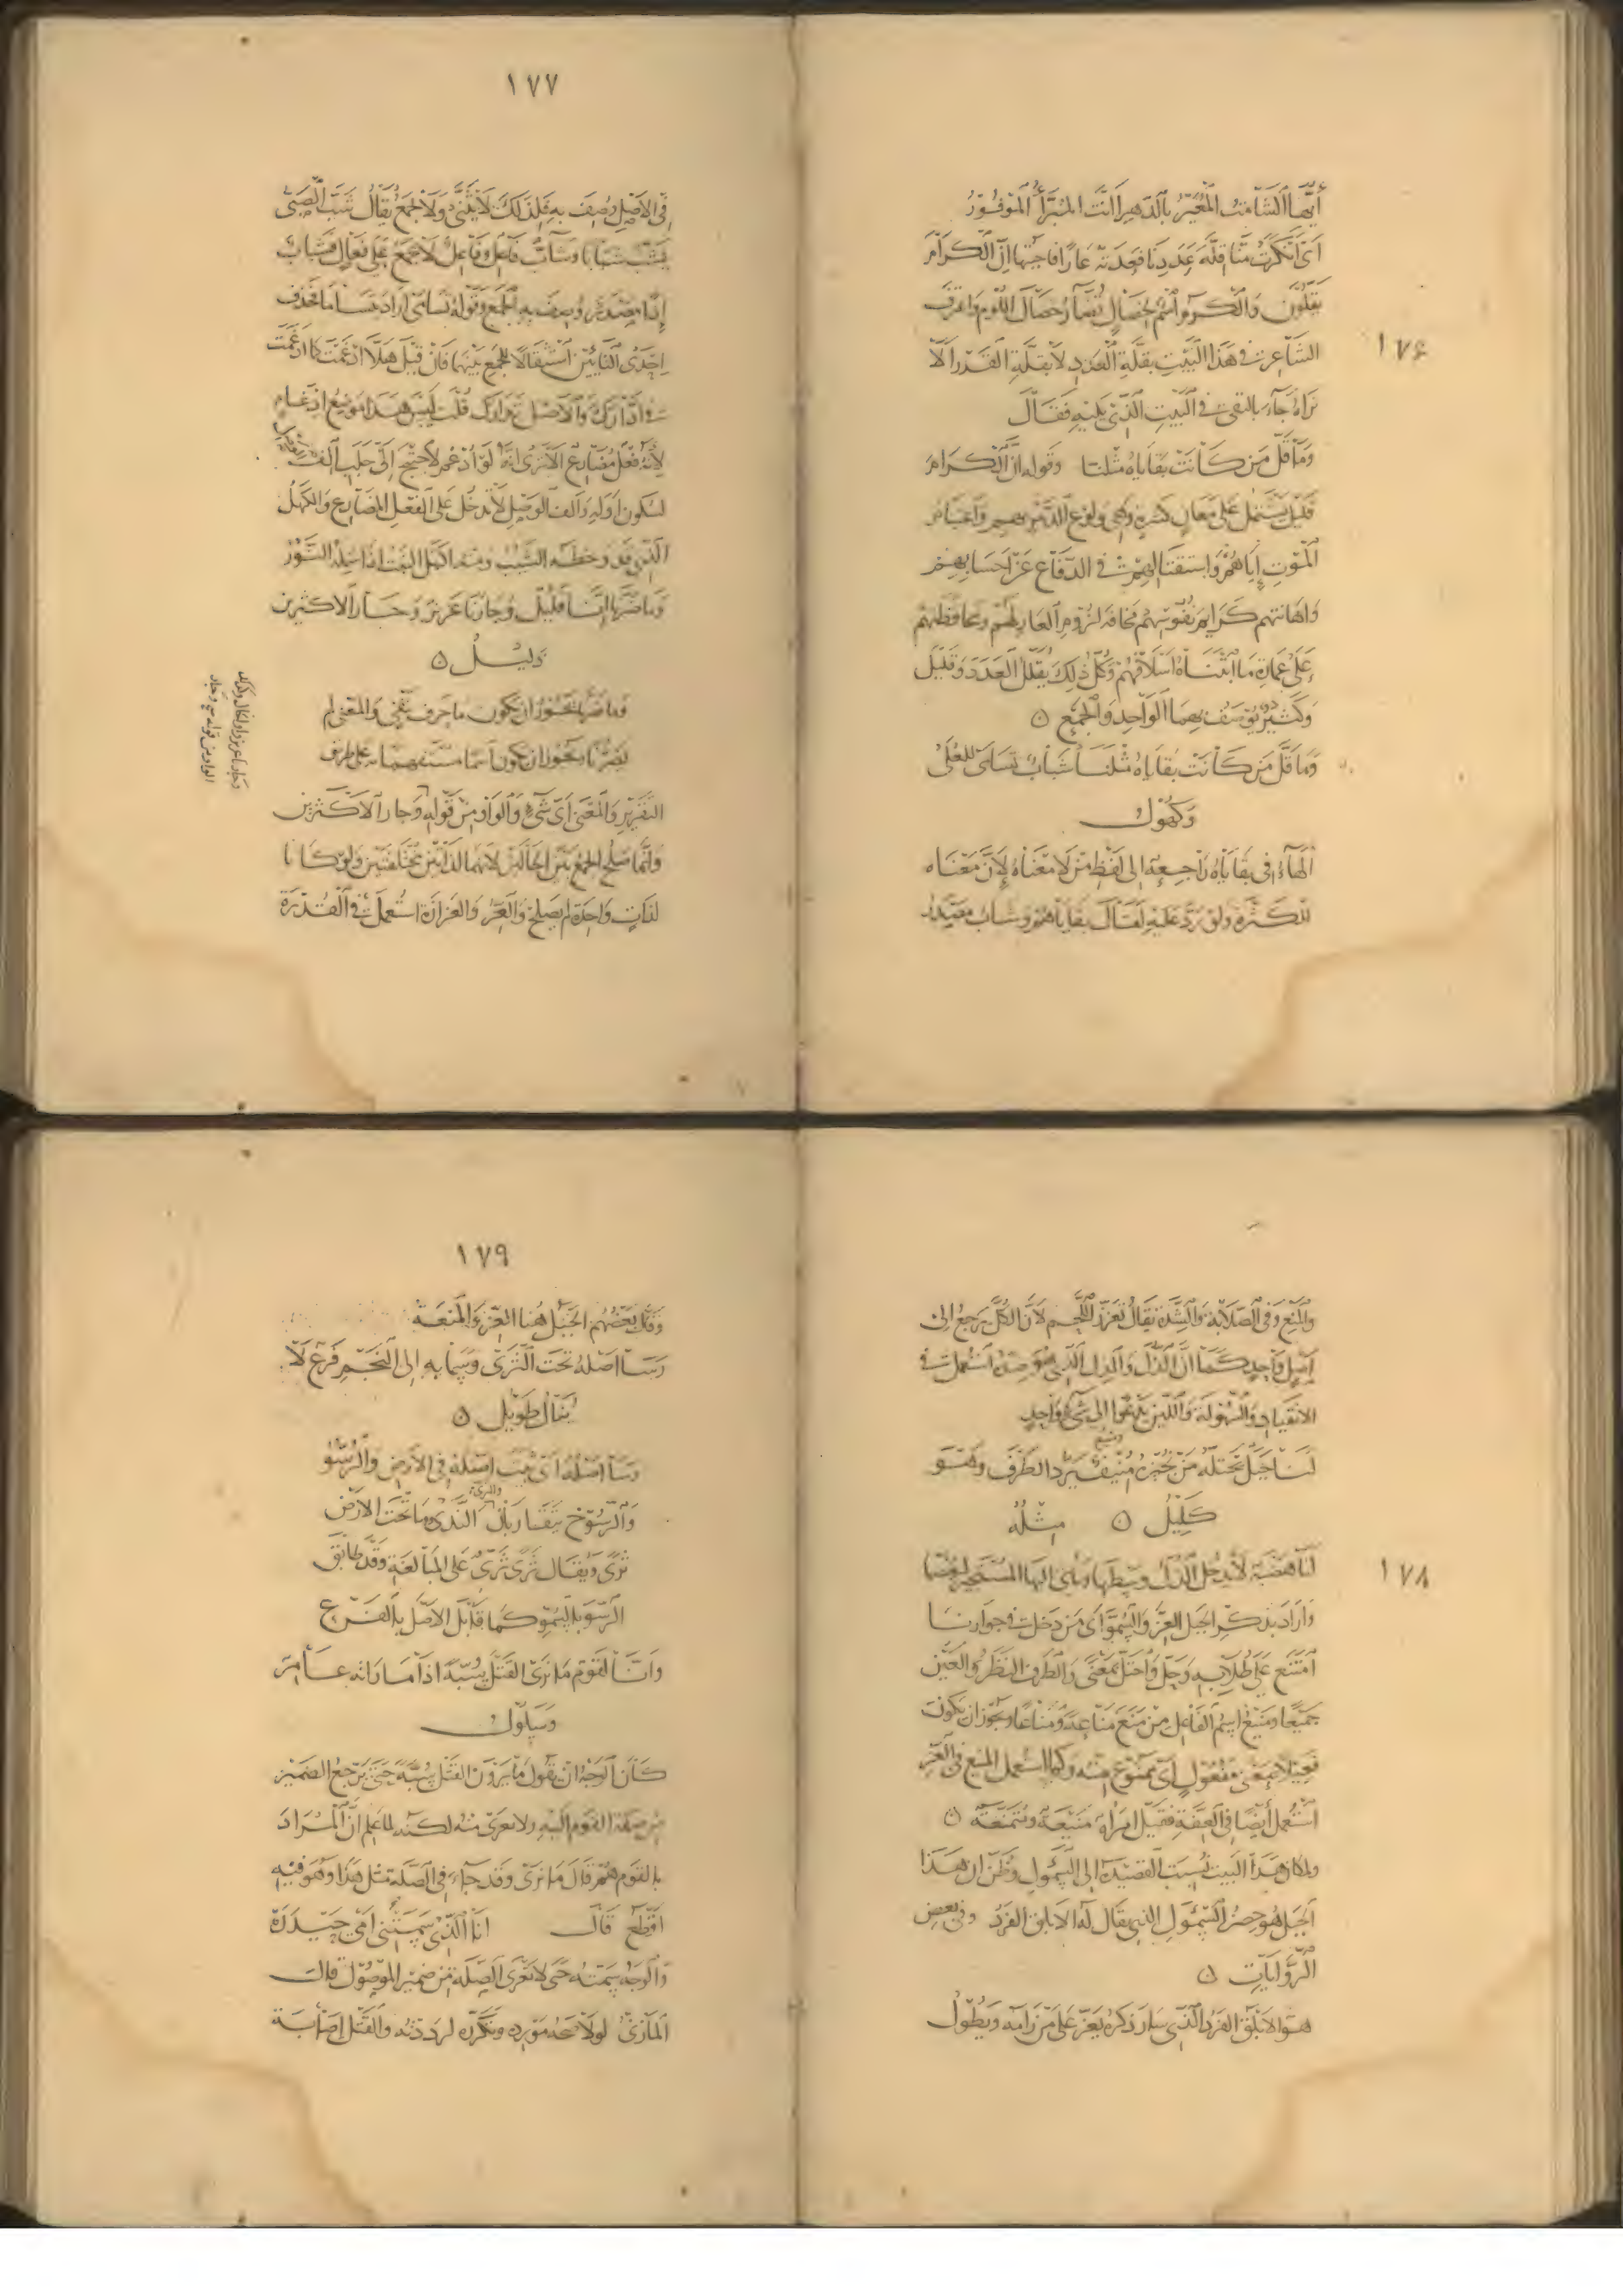 ١٧٦
أيها الشامت المعير بالدهر أأنت المبرأ الموفور
أي أنكرت منا قلة عددنا فعدته عارا فأجبتها إن الكرام
يقلون والكرم اسم لخصال تضاد خصال اللوم واعترف
الشاعر في هذا البيت بقلة العدد لا بقلة القدر ألا
تراه جاء بالنفي في البيت الذي يليه فقال
وما قل من كانت بقاياه مثلنا وقوله إن الكرام
قليل يشتمل على معان كثيرة وهي ولوع الدهر بهم واعتيام
الموت إياهم واستقتالهم في الدفاع عن أحسابهم
وإهانتهم كرايم نفوسهم مخافة لزوم العار لهم ومحافظتهم
على عمارة ما ابتناه أسلافهم وكل ذلك يقلل العدد وقليل
وكثير يوصف بهما الواحد والجمع ٥
وما قل من كانت بقاياه مثلنا شباب تسامى للعلى
وكهول
الهاء في بقاياه راجعة إلى لفظ من لا معناه لأن معناه
للكثرة ولو رد عليه لقال بقاياهم وشباب مصدر
١٧٧
في الأصل وصف به فلذلك لا يثنى ولا يجمع يقال شب الصبي
يشب شبابا وشاب فاعل وفاعل لا يجمع على فعال فشباب
إذا مصدر وصف به الجمع وقوله تسامى أراد تتسامى فحذف
إحدى التائين استثقالا للجمع بينهما فإن قيل هلا أدغمت كما أدغمت
في ادارك والأصل تدارك قلت ليس هذا موضع إدغام
لأنه فعل مضارع ألا ترى أنه لو أدغم لاحتيج إلى جلب ألف
لسكون أوله وألف الوصل لا تدخل على الفعل المضارع والكهل
الذي قد وخطه الشيب ومنه اكتهل النبت إذا شمله النور
وما ضرها أنا قليل وجارنا عزيز وجار الأكثرين
ذليل ٥
وما ضرها يجوز أن يكون ما حرف نفي والمعنى لم
يضرنا ويجوز أن يكون اسما مستفهما به على طريق
التقرير والمعنى أي شيء والواو من قوله وجار الأكثرين
وإنما صلح الجمع بين الحالين لأنهما لذاتين مختلفتين ولو كانا
لذات واحدة لم يصلح والعز والعزازة استعملت في القدرة
١٧٨
والمنع وفي الصلابة والشدة يقال تعزز اللحم لأن الكل يرجع إلى
أصل واحد كما أن الذل والذل الذي هو ضده استعملت في
الانقياد والسهولة واللين يرجعوا إلى شيء واحد
لنا جبل يحتله من نجيره منيف يرد الطرف وهو
منيع
كليل ٥ مثله
لنا هضبة لا يدخل الذل وسطها ويأوي إليها المستجير ليعصما
وأراد بذكر الجبل العز والسمو أي من دخل في جوارنا
امتنع على طلابه وحل واحتل بمعنى والطرف النظر والعين
جميعا ومنيع اسم الفاعل من منع مناعة ومناعا ويجوز أن يكون
فعيلا بمعنى مفعول أي ممنوع منه وكما استعمل المنع في العز
استعمل أيضا في العفة فقيل امرأة منيعة ومتمنعة ٥
ولمكان هذا البيت نسبت القصيدة إلى السموأل وظن أن هذا
الجبل هو حصن السموأل الذي يقال له الأبلق الفرد وفي بعض
الروايات ٥
هو الأبلق الفرد الذي سار ذكره يعز على من رامه ويطول
١٧٩
وقال بعضهم الجبل هنا العز والمنعة
رسا أصله تحت الثرى وسما به إلى النجم فرع لا
ينال طويل ٥
رسا أصله أي ثبت أصله في الأرض والرسو
والرسوخ يتقاربان والثرى الندى وما تحت الأرض
ثرى ويقال ثرى ثري على المبالغة وقد طابق
الرسو بالسمو كما قابل الأصل بالفرع
وإنا لقوم ما نرى القتل سبة إذا ما رأته عامر
وسلول
كان الوجه أن يقول ما يرون القتل سبة حتى يرجع الضمير
من صفة القوم إليه ولا يعرى منه لكنه لما علم أن المراد
بالقوم هم قال ما نرى وقد جاء في الصلة مثل هذا وهو فيه
أفظع قال أنا الذي سمتني أمي حيدرة
والوجه سمته حتى لا تعرى الصلة من ضمير الموصول قال
المازني لولا صحة مورده وتكرره لرددته والقتل إصابة